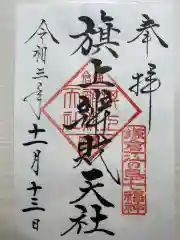 奉拝
旗上辨財天社
令和三年
十一月十三日
鎌倉江の島七福神